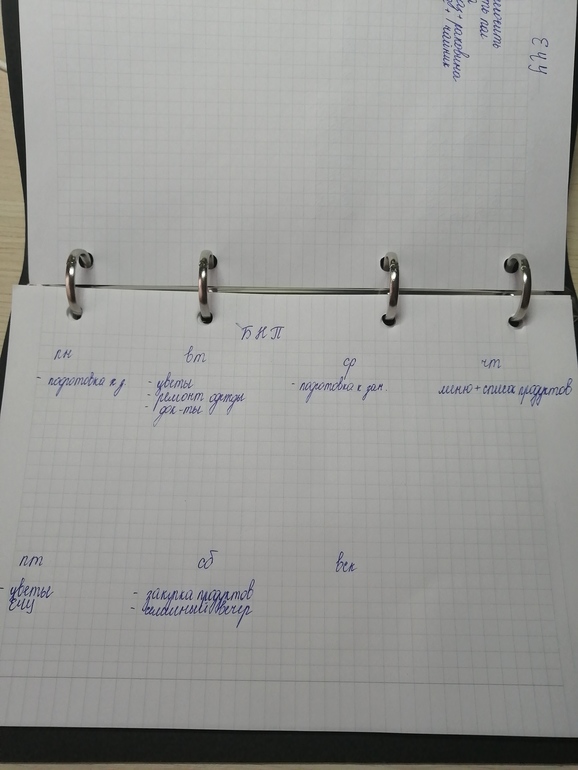 ЕЧУ
раковина
чайник
БНП
пн
- подготовка к д
вт
- цветы
- ремонт одежды
- док-ты
ср
- подготовка к зан.
чт
меню + список продуктов
пт
- цветы
ЕЧУ
сб
- закупка продуктов
- семейный вечер
вск